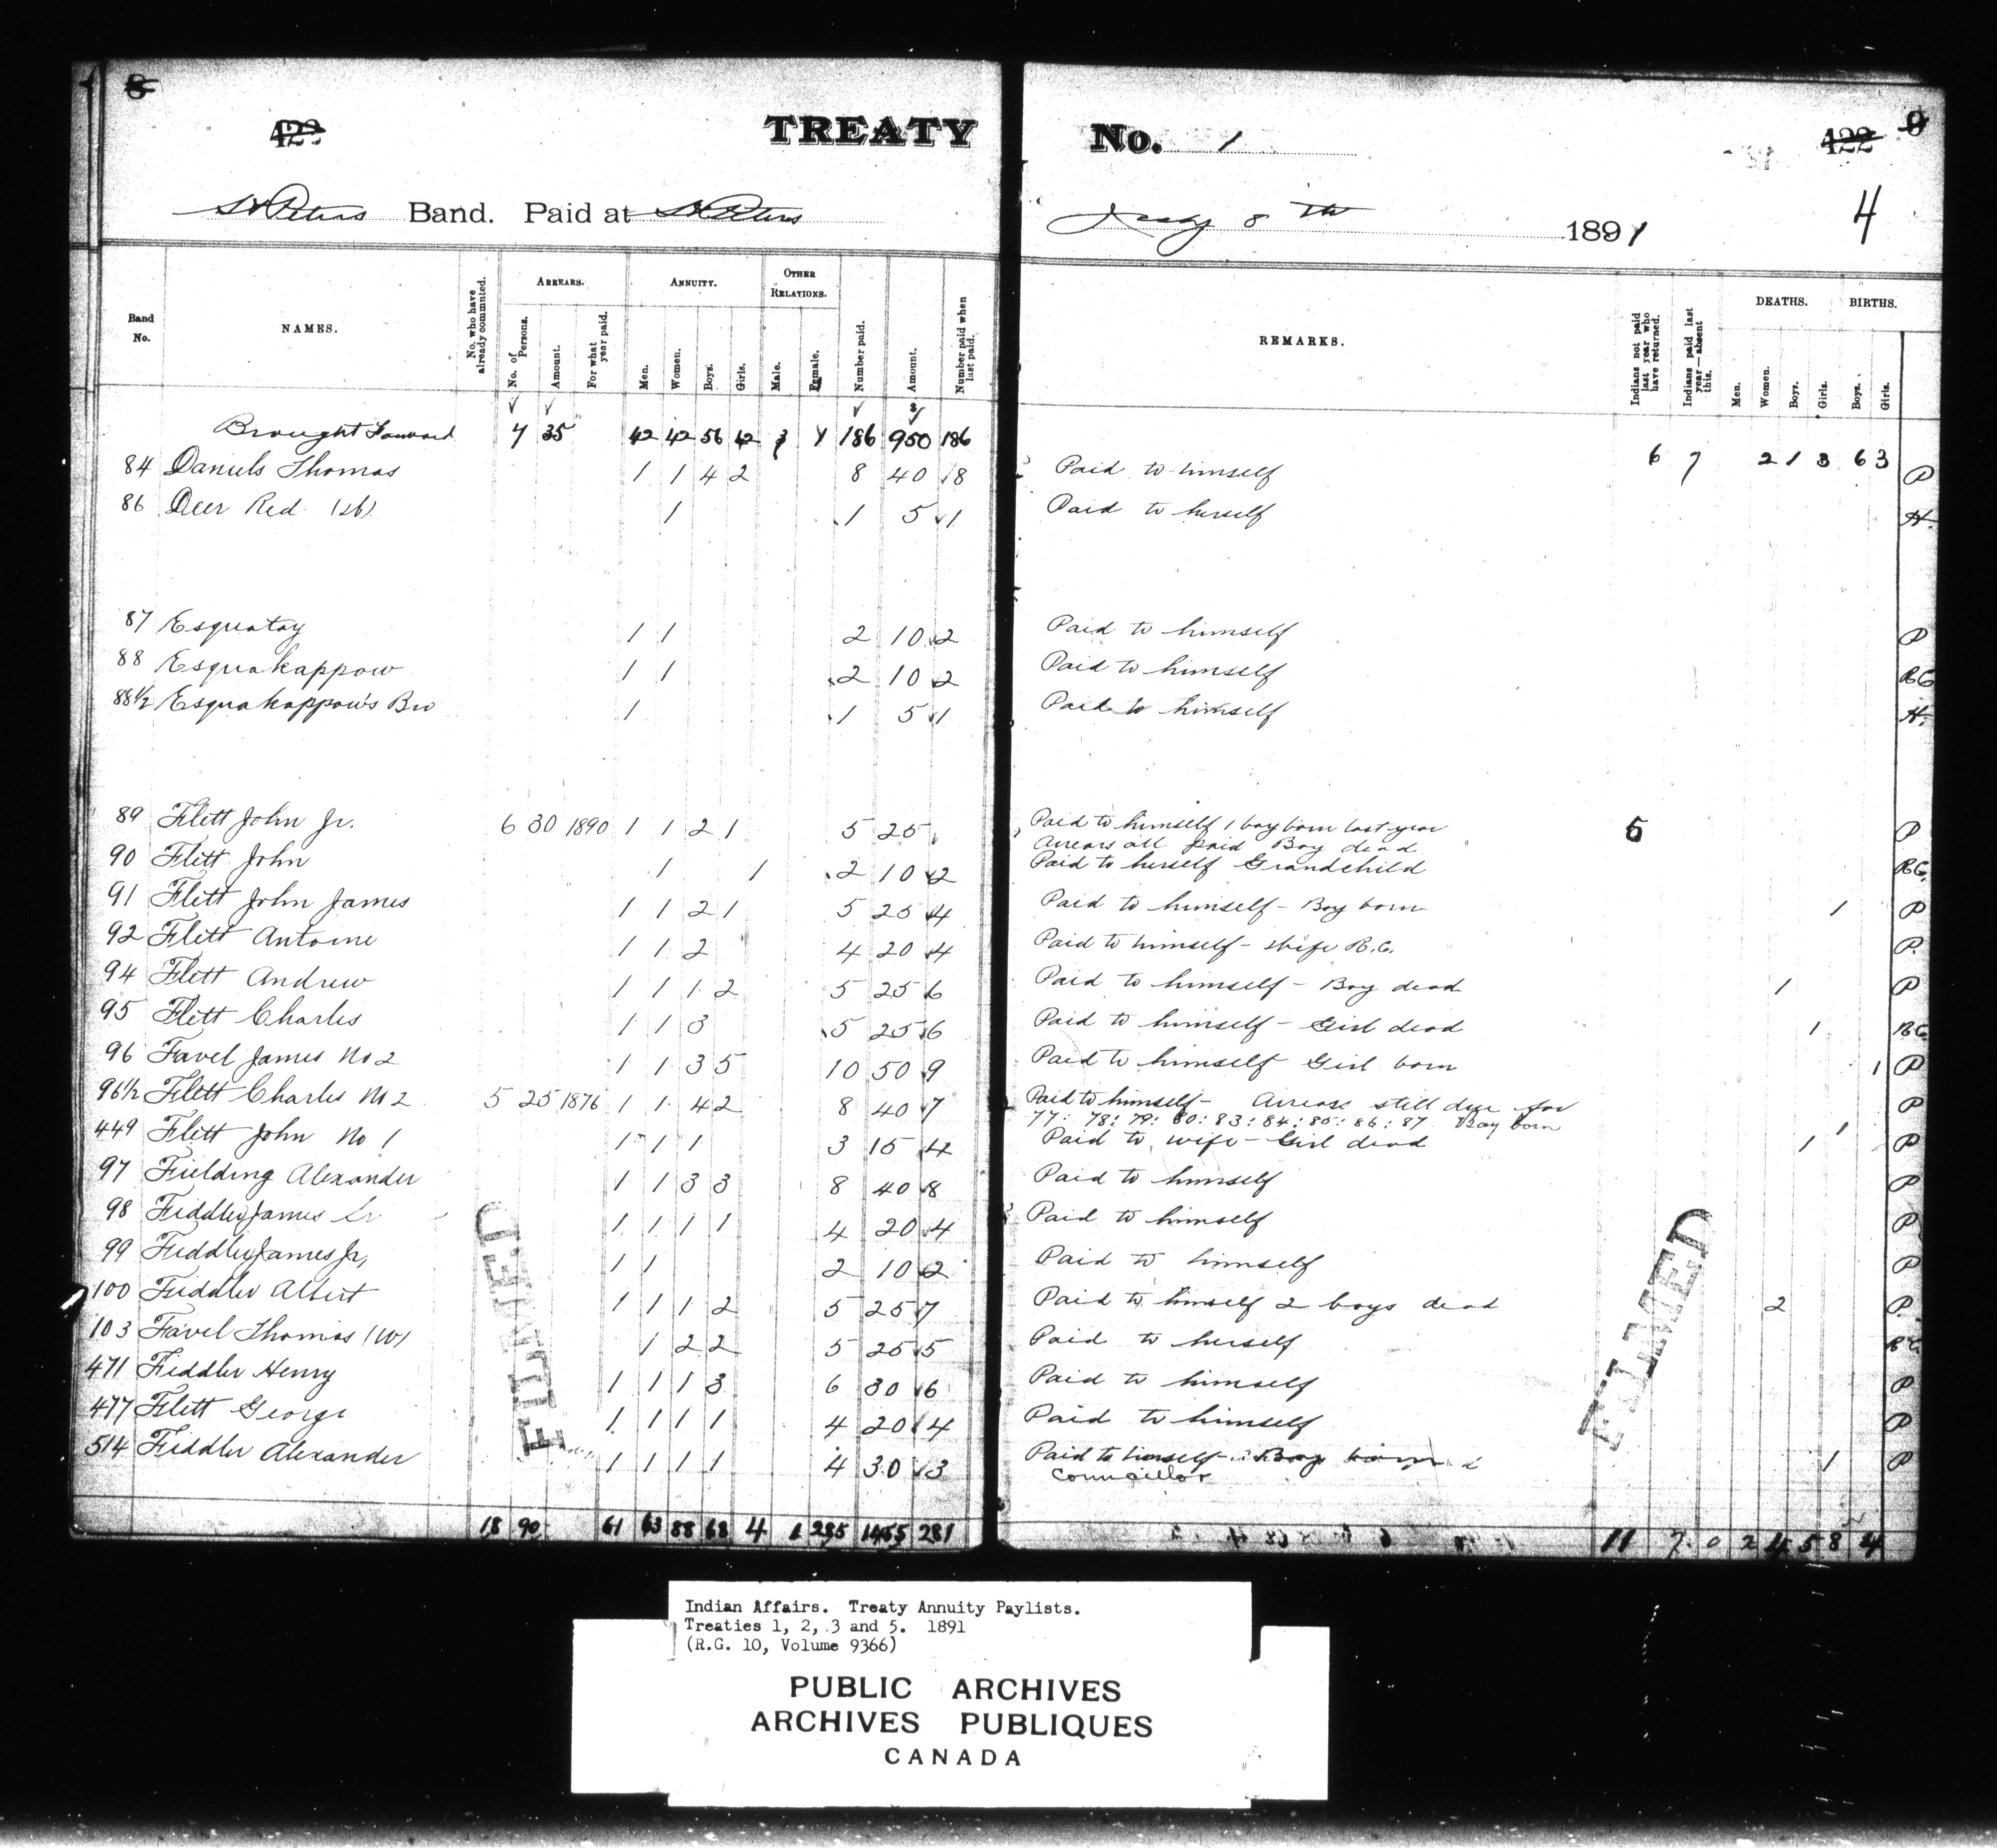 8
TREATY No. 1
422 9
St Peters Band. Paid at St Peters
July 8th 1891
4
Band No.
NAMES.
No. who have already commuted.
ARREARS.
No. of Persons.
Amount.
For what year paid.
ANNUITY.
Men.
Women.
Boys.
Girls.
OTHER RELATIONS.
Male.
Female.
Number paid.
Amount.
Number paid when last paid.
REMARKS.
Indians not paid last year who have returned.
Indians paid last year—absent this.
DEATHS.
Men.
Women.
Boys.
Girls.
BIRTHS.
Boys.
Girls.
Brought Forward 7 35 42 42 56 42 3 1 186 950 186 6 7 2 1 3 6 3
84 Daniels Thomas 1 1 4 2 8 40 8 Paid to himself P
86 Deer Red 1 1 5 1 Paid to herself H.
87 Esquatay 1 1 2 10 2 Paid to himself P
88 Esquakappow 1 1 2 10 2 Paid to himself RC
88½ Esquakappow's Bro 1 1 5 1 Paid to himself H.
89 Flett John Jr. 6 30 1890 1 1 2 1 5 25 Paid to himself 1 boy born last year 5 P
Arrears all paid Boy dead
90 Flett John 1 1 2 10 2 Paid to herself Grandchild RC.
91 Flett John James 1 1 2 1 5 25 4 Paid to himself - Boy born 1 P
92 Flett Antoine 1 1 2 4 20 4 Paid to himself - Wife R.C. P.
94 Flett Andrew 1 1 1 2 5 25 6 Paid to himself - Boy dead 1 P
95 Flett Charles 1 1 3 5 25 6 Paid to himself - Girl dead 1 RC
96 Favel James No 2 1 1 3 5 10 50 9 Paid to himself Girl born 1 P
96½ Flett Charles No 2 5 25 1876 1 1 4 2 8 40 7 Paid to himself - Arrears still due for P
77: 78: 79: 80: 83: 84: 85: 86: 87 Boy born 1
449 Flett John No 1 1 1 1 3 15 4 Paid to wife - Girl dead 1 P
97 Fielding Alexander 1 1 3 3 8 40 8 Paid to himself P
98 Fiddler James Sr 1 1 1 1 4 20 4 Paid to himself P
99 Fiddler James Jr, 1 1 2 10 2 Paid to himself P
100 Fiddler Albert 1 1 1 2 5 25 7 Paid to himself 2 boys dead 2 P.
103 Favel Thomas (W) 1 2 2 5 25 5 Paid to herself RC
471 Fiddler Henry 1 1 1 3 6 30 6 Paid to himself P
477 Flett George 1 1 1 1 4 20 4 Paid to himself P
514 Fiddler Alexander 1 1 1 1 4 30 3 Paid to himself - Boy born & 1 P
Councillor
18 90 61 63 88 68 4 1 285 1455 281 11 7 0 2 4 5 8 4
FILMED
FILMED
Indian Affairs. Treaty Annuity Paylists.
Treaties 1, 2, 3 and 5. 1891
(R.G. 10, Volume 9366)
PUBLIC ARCHIVES
ARCHIVES PUBLIQUES
CANADA